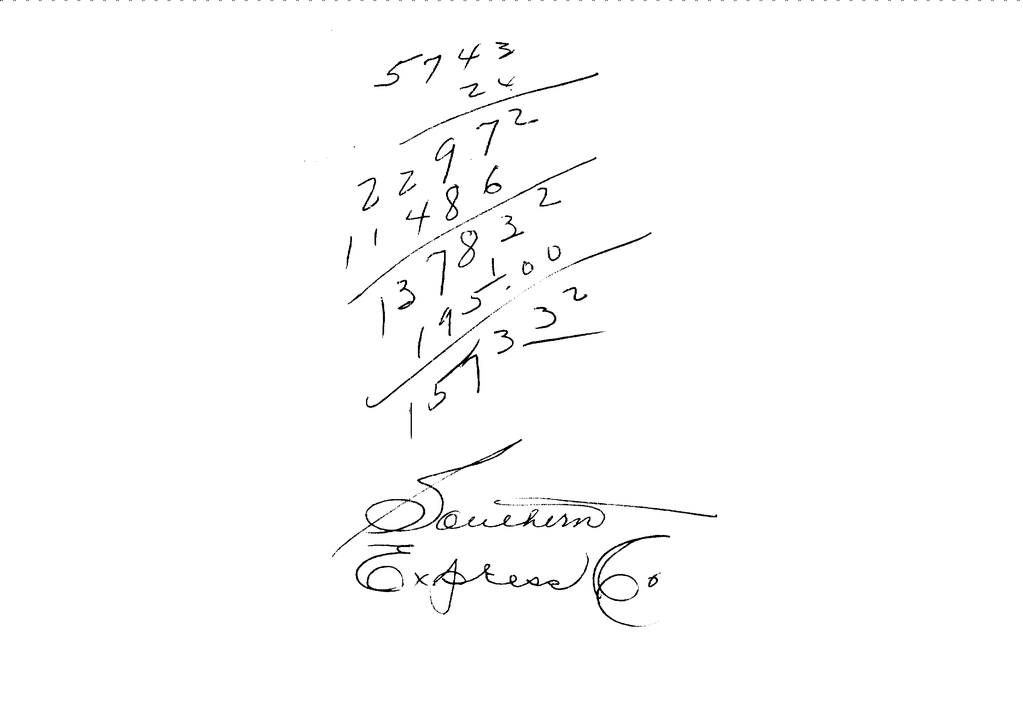 5743
24
22972
11486
137832
195.00
157332
Southern
Express Co